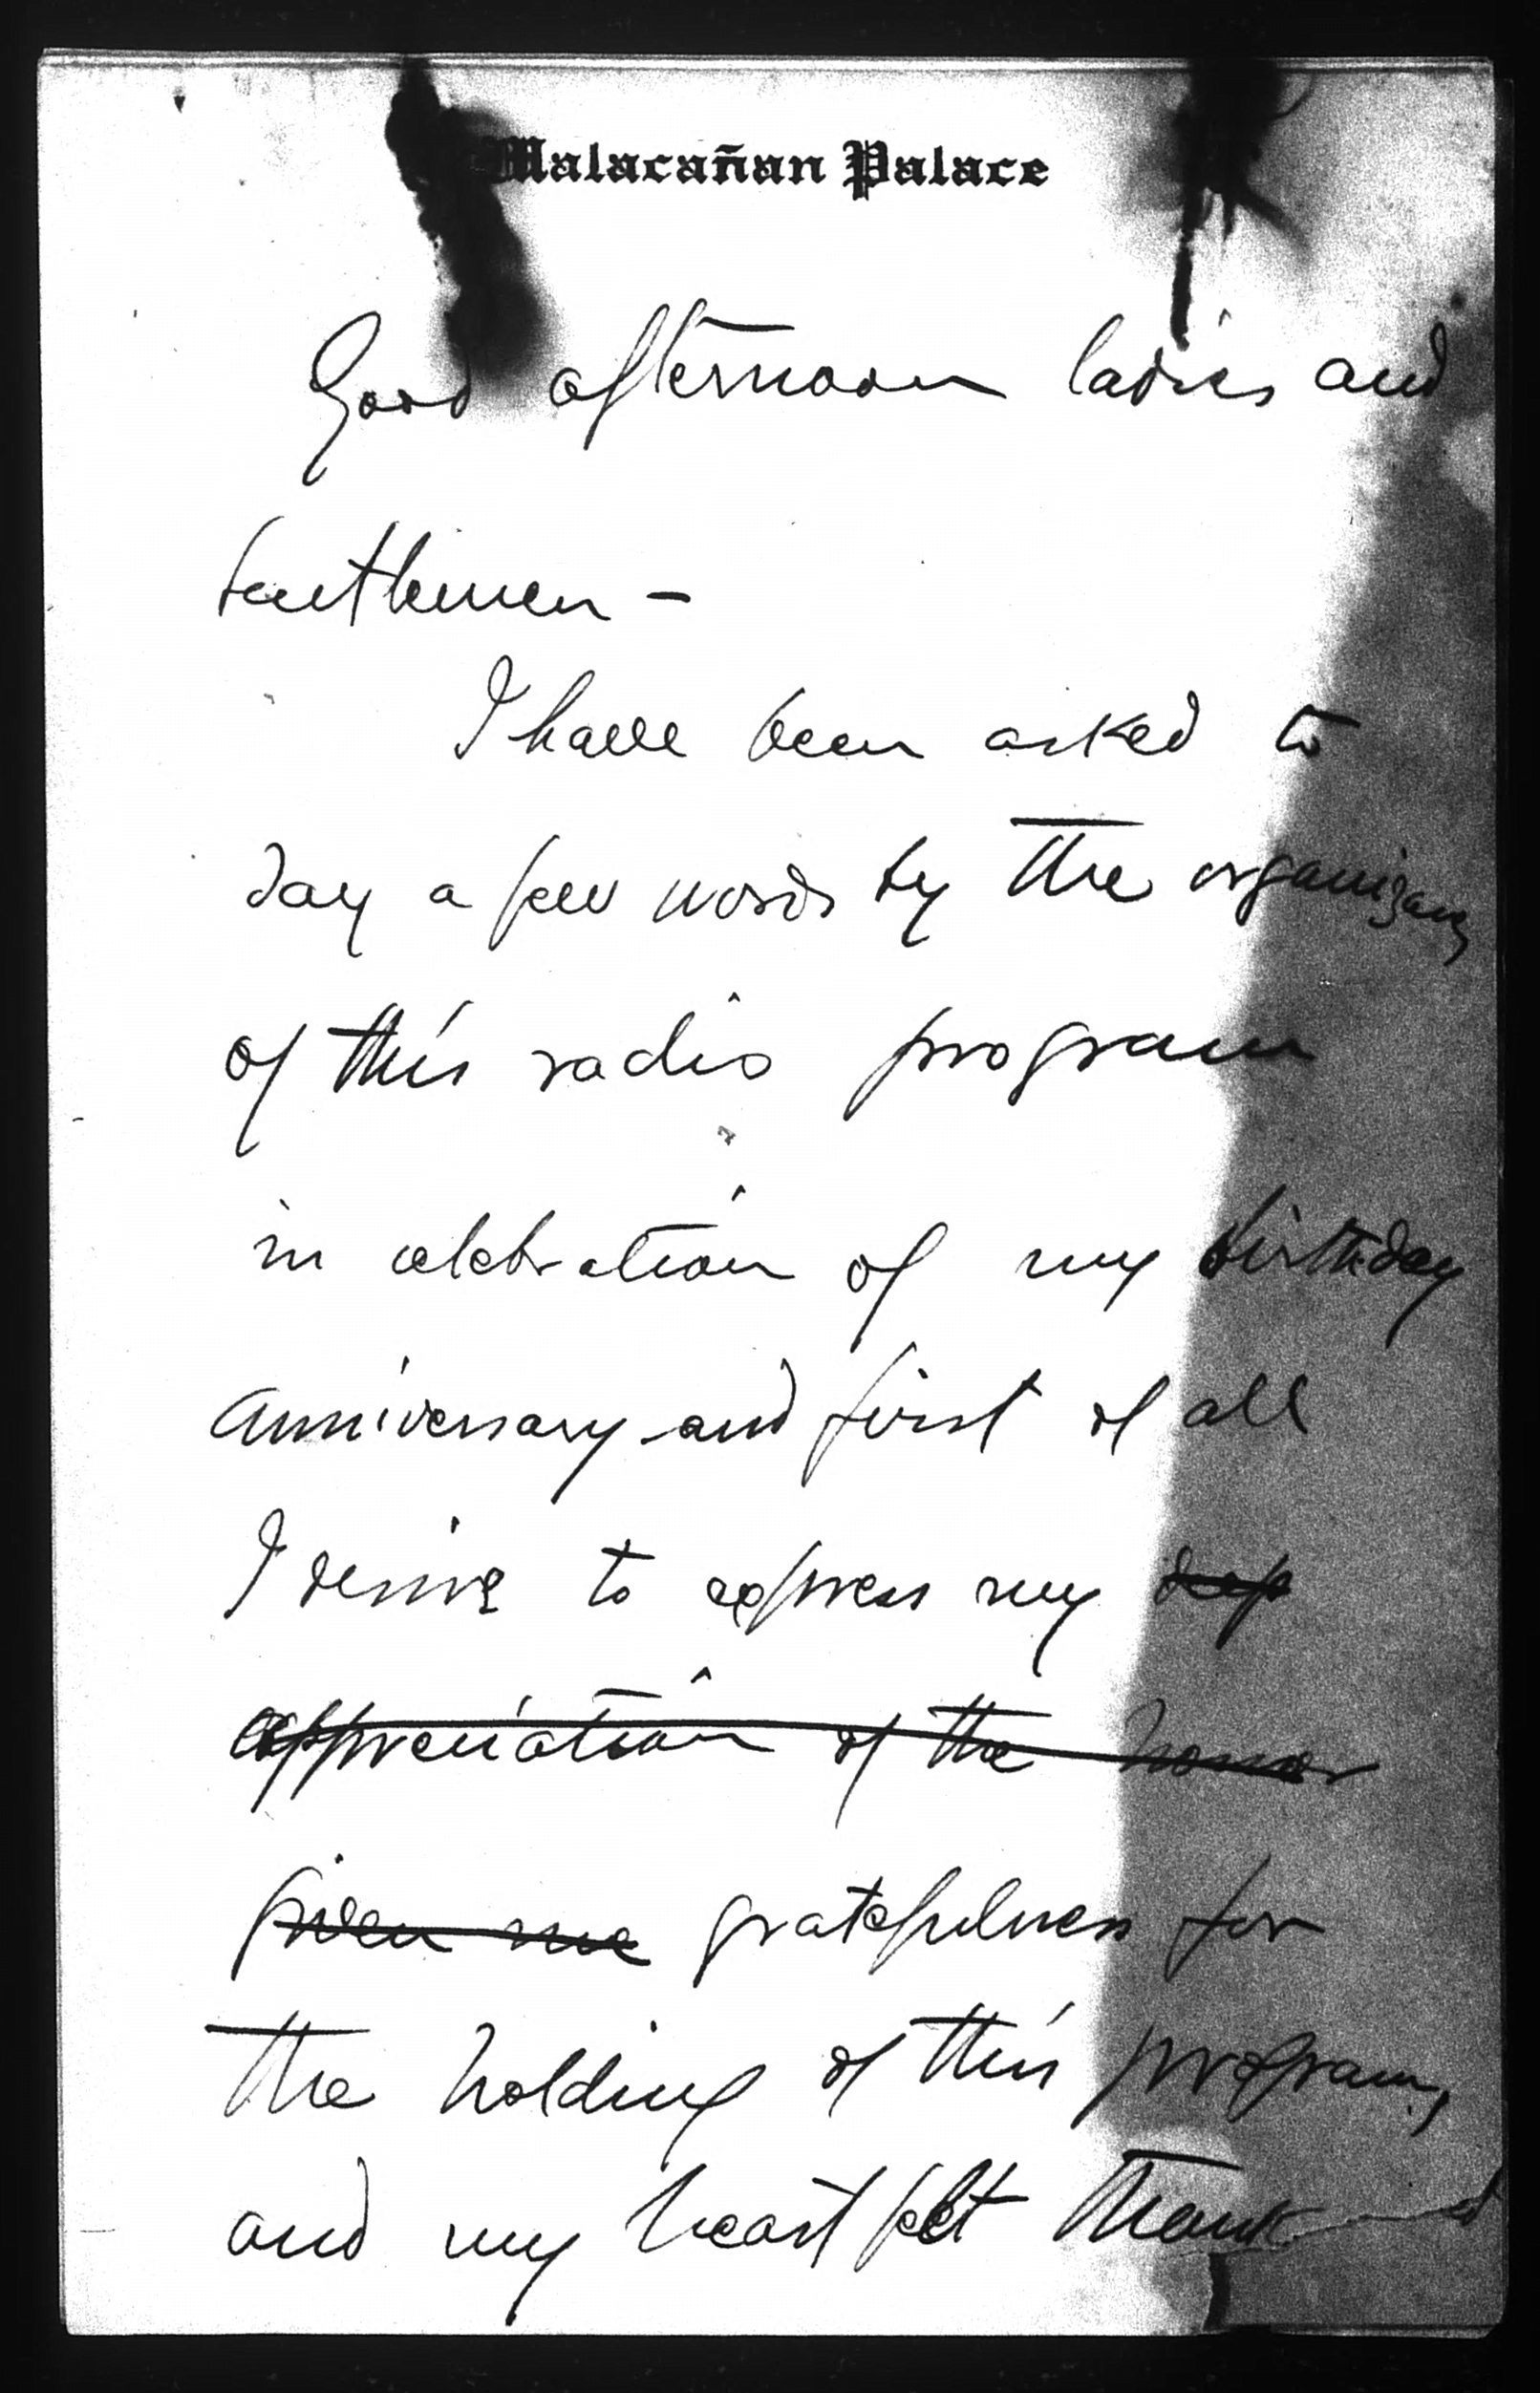 Malacañan Palace
Good afternoon ladies and
Gentlemen -
I have been asked to
say a few words by the
of this radio program
in celebration of my birthday
anniversary and first of all
I desire to express my deep
appreciation of the honor
given me gratefulness for
the holding of this program,
and my heart felt thank